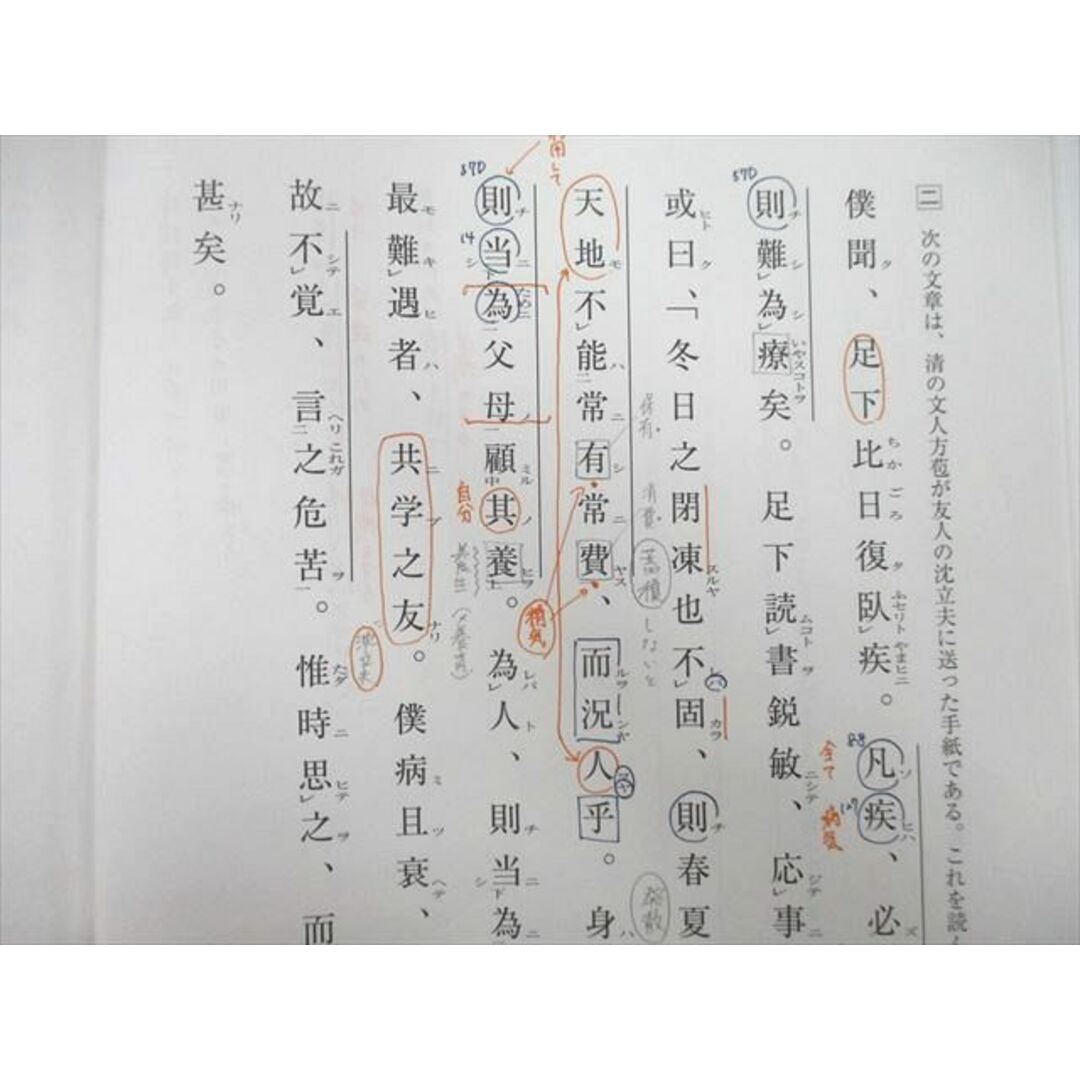 二 次の文章は、清の文人方苞が友人の沈立夫に送った手紙である。これを読
僕聞、足下比日復臥疾。凡疾、必
則難為療矣。足下読書鋭敏、応事
或曰、「冬日之閉凍也不固、則春夏
天地不能常有常費、而況人乎。身
則当為父母顧其養。為人、則当為
最難遇者、共学之友。僕病且衰、
故不覚、言之危苦。惟時思之、而
甚矣。
全て
病気
保有。
消費。
蓄積しないと
発散
精気
自分
養生
(×養育)
570
570
14